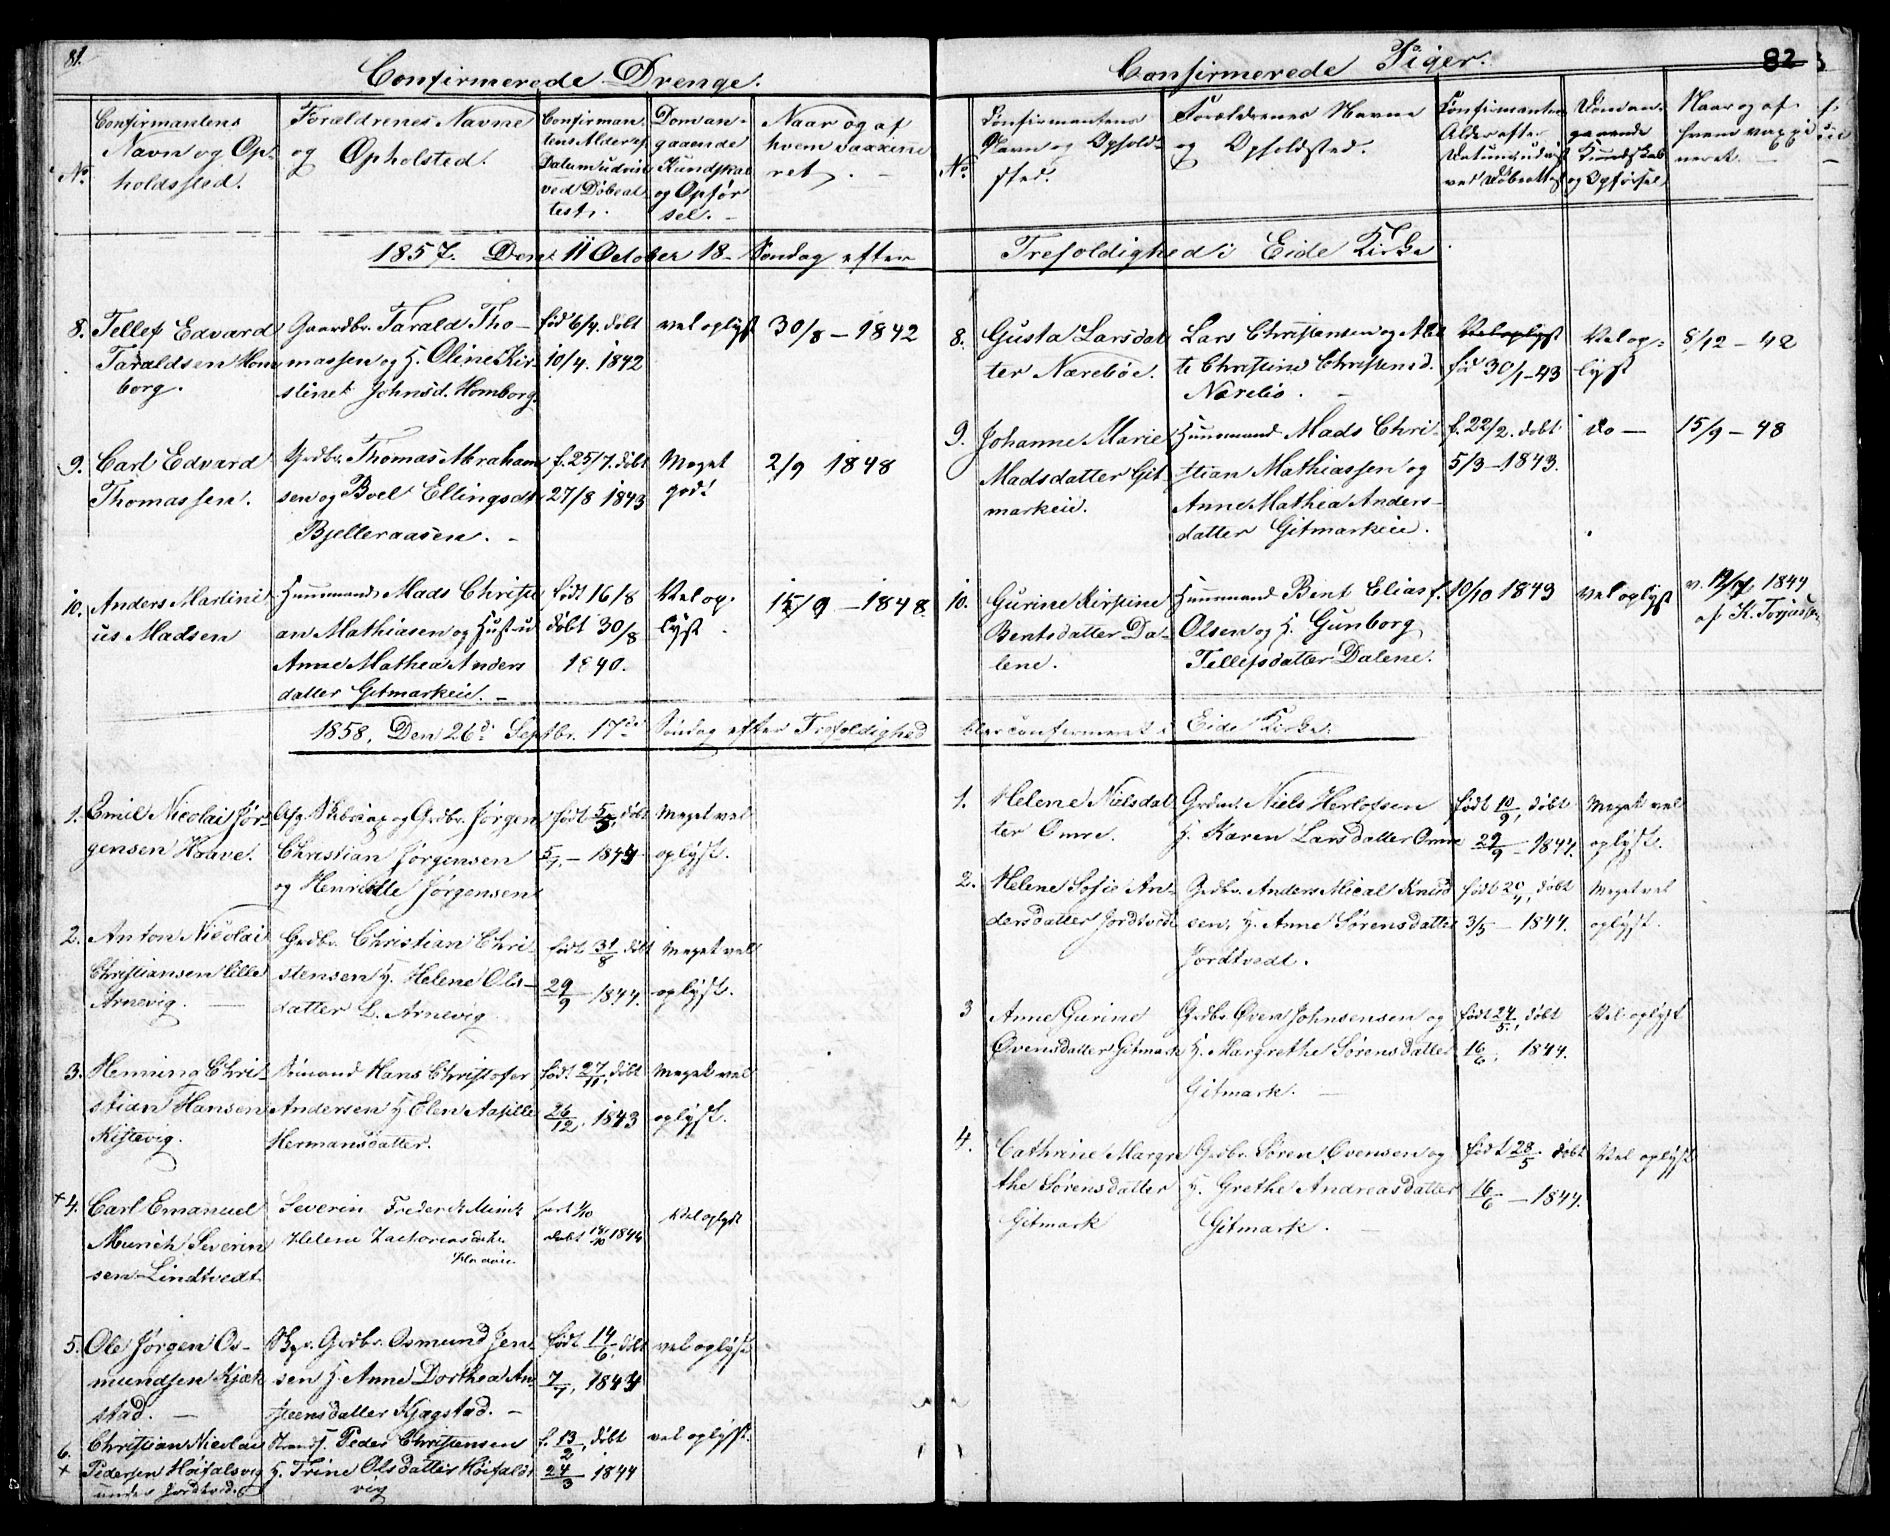 81.
Confirmerede Drenge.
No.
Confirmantens
Navn og Op-
holdssted.
Forældrenes Navne
og Opholsted.
Confirman-
tens Alder ef
Datum udvist
ved Døbeat
test.
Dom an-
gaaende
Kundskab
og Opfør
sel. -
Naar og af
hvem vaxine
ret. -
1857. Den 11 October 18- Søndag efter
8. Tellef Edvard
Taraldsen Hom
borg.
Gaardbr. Tarald Tho-
massen og H. Oline Kir-
stine Johnsd. Homborg.
fød 6/4. døbt
10/4. 1842
vel oplyst
30/8 - 1842
9. Carl Edvard
Thomassen.
Grdbr. Thomas Abraham
sen og Boel Ellingsdt
Bjelleraasen. -
f. 25/7. døbt
27/8 1843
Meget
god!
2/9 1848
10. Anders Martini
us Madsen
Huusmand Mads Christi
an Mathiasen og Hustru
Anne Mathea Anders
datter Gitmarkeie. -
født 16/8
døbt 30/8
1840.
Vel op-
lyst
15/9 - 1848.
1858. Den 26d. Septbr. 17de Søndag efter Trefoldighed
1. Emil Nicolai Jør-
gensen Haave.
og Grdbr. Jørgen
Christian Jørgensen
og Henriette Jørgensen
født 5/5, døbt
5/7, - 1844
Meget vel
oplyst.
2. Anton Nicolai
Christiansen Lille
Arnevig. -
Grdbr. Christian Chri-
stensen H. Helene Ols-
datter L. Arnevig
født 31/8 døbt
29/9 - 1844.
Meget vel
oplyst.
3. Henning Chri-
stian Hansen
Kistevig.
Sømand Hans Christofer
Andersen H. Elen Aasille
Hermansdatter.
født 27/11, døbt
26/12. 1843
Meget vel
oplyst.
+4. Carl Emanuel
Munich Severin
sen Lindtvedt
Severin Frederck Munk
Helene Zachoriasdatr.
født 1/10
døbt 1844
Vel oplyst
5. Ole Jørgen Os-
mundsen Kjæk
stad. -
Grdbr. Osmund Jen
sen H. Anne Dorthea An
steensdatter Kjægstad. -
født 14/6, døbt
7/7, 1844
vel oplyst
6. Christian Nicolai
+ Pedersen Høifalsvig
under Jordtvedt
Strands. Peder Christensen
H. Trine Olsdatter Høifalds
vig
f. 13/2, døbt
24/3 1844
vel oplyst.
Confirmerede Piger.
82
No.
Confirmantens
Navn og Ophold-
sted.
Forældrenes Navne
og Opholdsted.
Confirmantens
Alder efter
Datum, udvist
ved Døbeattest
Dom an-
gaaende
Kundskab
og Opførsel
Naar og af
hvem vaxxi
neret. -
Trefoldighed i Eide Kirke
8. Gusta Larsdat
ter Nærebøe.
Lars Christiansen og Abel
te Christine Christensd.
Nærebø. -
Vel oplyst
fød 30/1-43
Vel op-
lyst
8/12 - 42
9. Johanne Marie
Madsdatter Git
markeie.
Huusmand Mads Chri-
stian Mathiassen og
Anne Mathea Anders-
datter Gitmarkeie.
f. 22/2. døbt
5/3-1843.
do -
15/9 - 48
10. Gurine Kirstine
Bentsdatter Da-
lene.
Huusmand Bent Elias
Olsen og H. Gunborg
Tellefsdatter Dalene.
f. 10/10 1843
vel oplyst
v. 12/7 1844
af K. Torjussen
blev confirmeret i Eide Kirke.
1. Helene Nielsdat
ter Omre.
Grdmd. Niels Herlofsen
H. Karen Larsdatter Omre
født 10/9, døbt
29/9 - 1844.
Meget vel
oplyst.
2. Helene Sofie An-
dersdatter Jordtvedt
Grdbr. Anders Mical Knud
sen, H. Anne Sørensdatter
Jordtvedt.
født 20/4, døbt
3/5 - 1844.
Meget vel
oplyst.
3 Anne Gurine
Øvensdatter Gitmark
Grdbr. Øven Johnsensen og
H. Margrethe Sørensdatter
Gitmark. -
født 24/5, døbt
16/6, 1844.
Vel oplyst
4. Cathrine Margre
the Sørensdatter
Gitmark
Grdbr. Søren Ovensen og
H. Grethe Andreasdatter
Gitmark. -
født 28/5 døbt
16/6 - 1844.
Vel oplyst